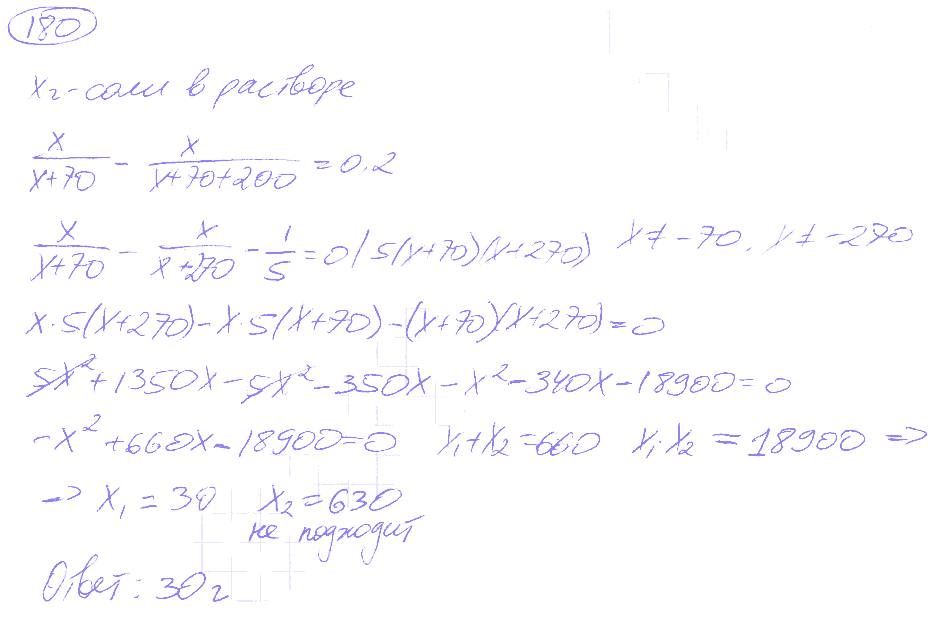 180
x г - соли в растворе
x/(x+70) - x/(x+70+200) = 0.2
x/(x+70) - x/(x+270) - 1/5 = 0 / 5(x+70)(x+270) x ≠ -70, x ≠ -270
x·5(x+270) - x·5(x+70) - (x+70)(x+270) = 0
5x² + 1350x - 5x² - 350x - x² - 340x - 18900 = 0
-x² + 660x - 18900 = 0 x₁+x₂ = 660 x₁·x₂ = 18900 =>
=> x₁ = 30 x₂ = 630
не подходит
Ответ: 30 г